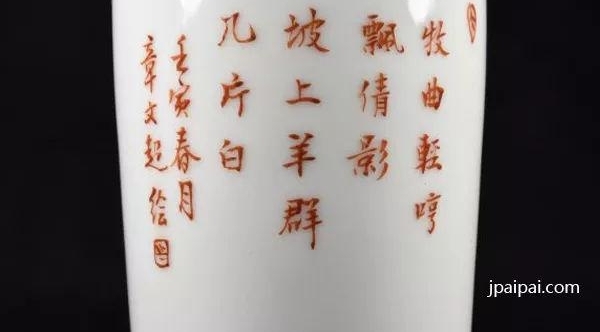 牧曲輕哼
飄倩影
坡上羊群
几片白
壬寅春月
章文超绘
jpaipai.com